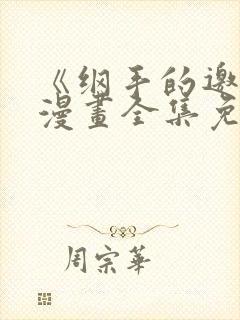 《纲手的邀
漫畫全集免
周宗華